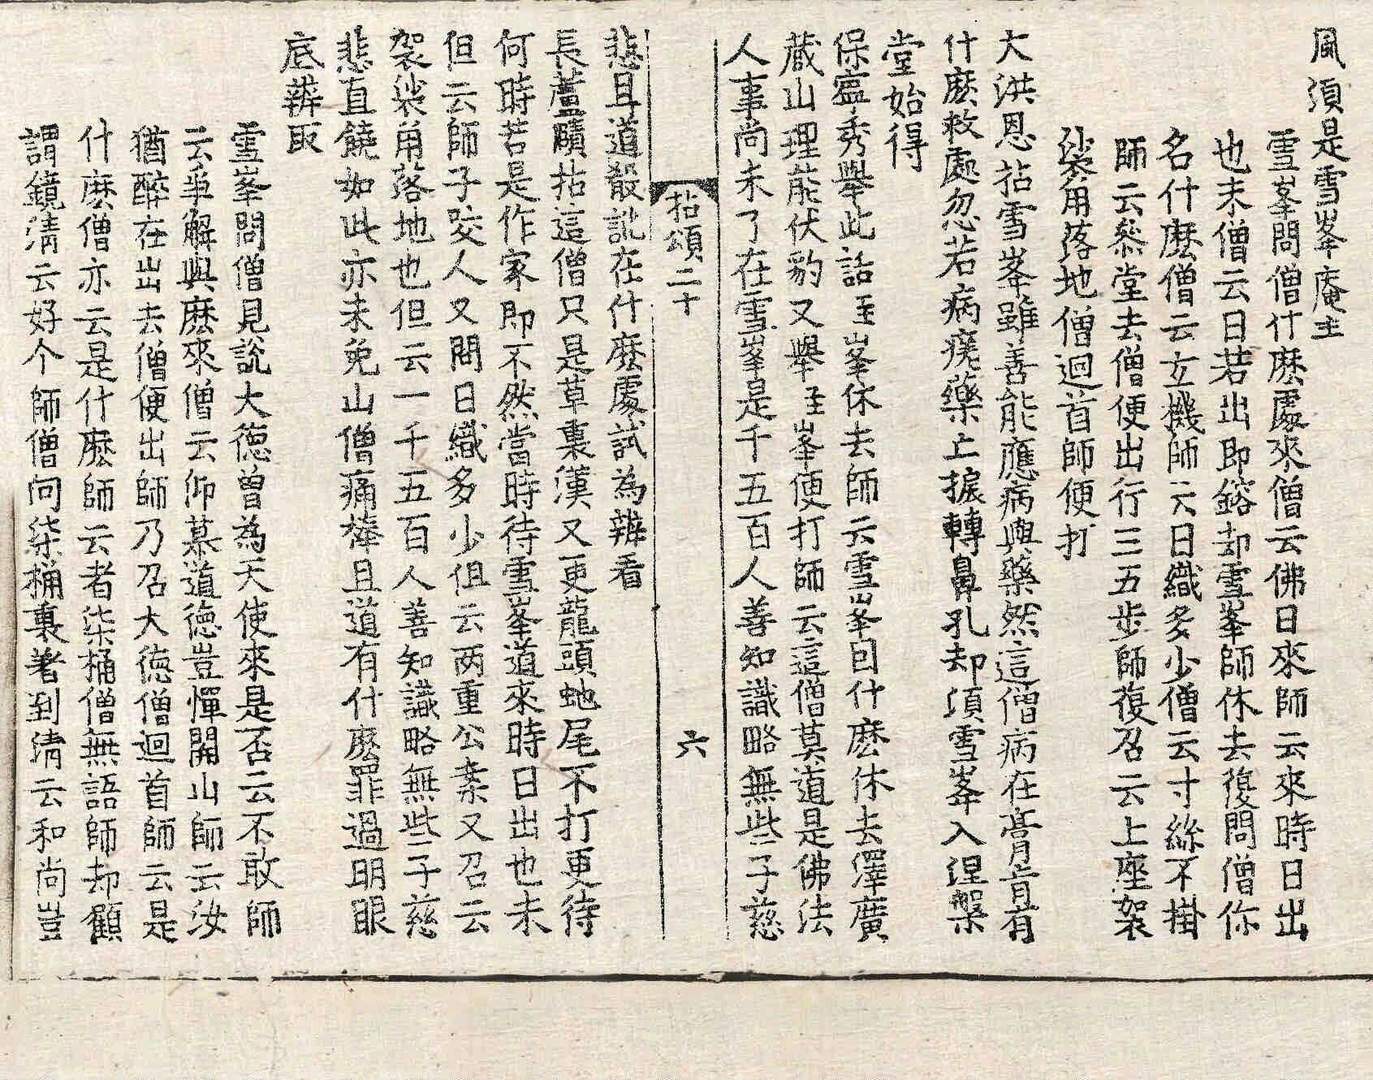 風須是雪峯庵主
雪峯問僧什麽處來僧云佛日來師云來時日出
也未僧云日若出即鎔却雪峯師休去復問僧你
名什麽僧云玄機師云日織多少僧云寸絲不掛
師云叅堂去僧便出行三五步師復召云上座袈
裟角落地僧迴首師便打
大洪恩拈雪峯雖善能應病與藥然這僧病在膏肓有
什麽救處忽若病瘥藥亡捩轉鼻孔却須雪峯入涅槃
堂始得
保寧秀舉此話至峯休去師云雪峯因什麽休去澤廣
蔵山理能伏豹又舉至峯便打師云這僧莫道是佛法
人事尚未了在雪峯是千五百人善知識略無些子慈
拈頌二十
六
悲且道殽訛在什麽處試為辨看
長蘆賾拈這僧只是草裏漢又更龍頭虵尾不打更待
何時若是作家即不然當時待雪峯道來時日出也未
但云師子咬人又問日織多少但云两重公案又召云
袈裟角落地也但云一千五百人善知識略無些子慈
悲直饒如此亦未免山僧痛棒且道有什麽罪過明眼
底辨取
雪峯問僧見說大徳曾為天使來是否云不敢師
云爭解與麽來僧云仰慕道徳豈憚關山師云汝
猶醉在出去僧便出師乃召大徳僧迴首師云是
什麽僧亦云是什麽師云者柒桶僧無語師却顧
謂鏡清云好个師僧向柒桶裏著到清云和尚豈